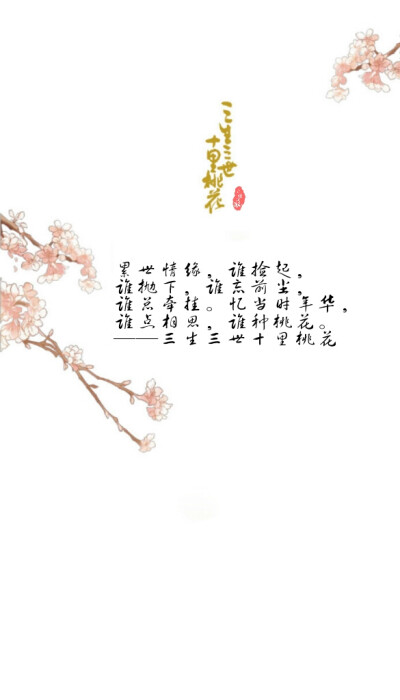 三生三世
十里桃花
累世情缘，谁捡起，
谁抛下，谁忘前尘，
谁总牵挂。忆当时年华，
谁点相思，谁种桃花。
——三生三世十里桃花